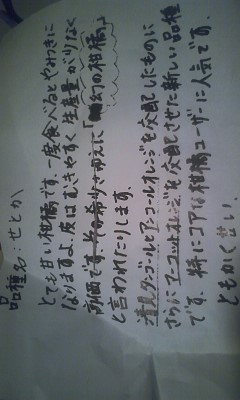 品種名:せとか
とても甘い柑橘です。一度食べるとやみつきに
なりますよ。皮はむきやすく生産量が少なく
高価です。その希少さゆえに「幻の柑橘」
と言われたりします。
清見タンゴールとアンコールオレンジを交配したものに
さらにマーコットオレンジを交配させた新しい品種
です。特にコアな柑橘ユーザーに人気です。
ともかく甘い。